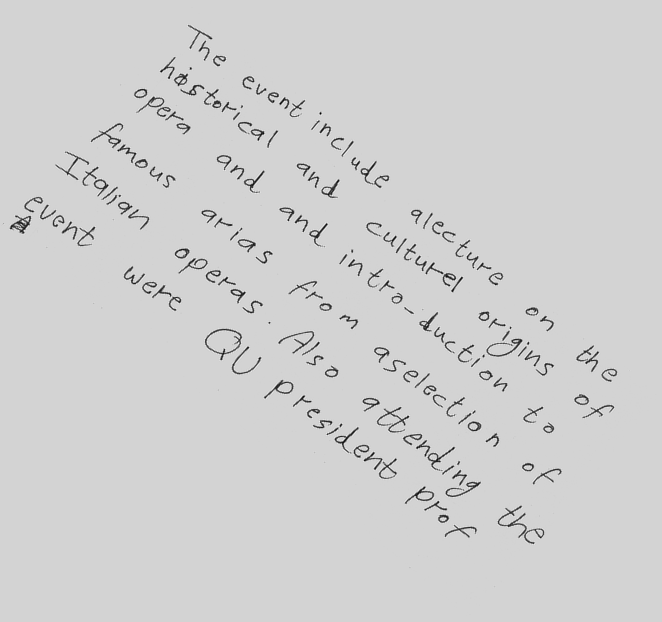 The event include alecture on the
historical and culturel origins of
opera and and intro-duction to
famous arias from aselection of
Italian operas. Also attending the
event were QU president prof